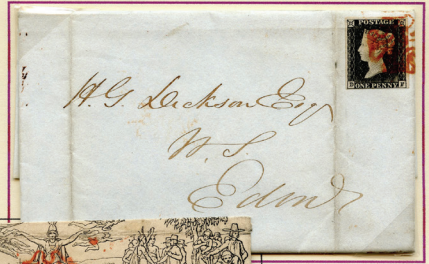 POSTAGE
ONE PENNY
H. G. Dickson Esq
W. S.
Edinr